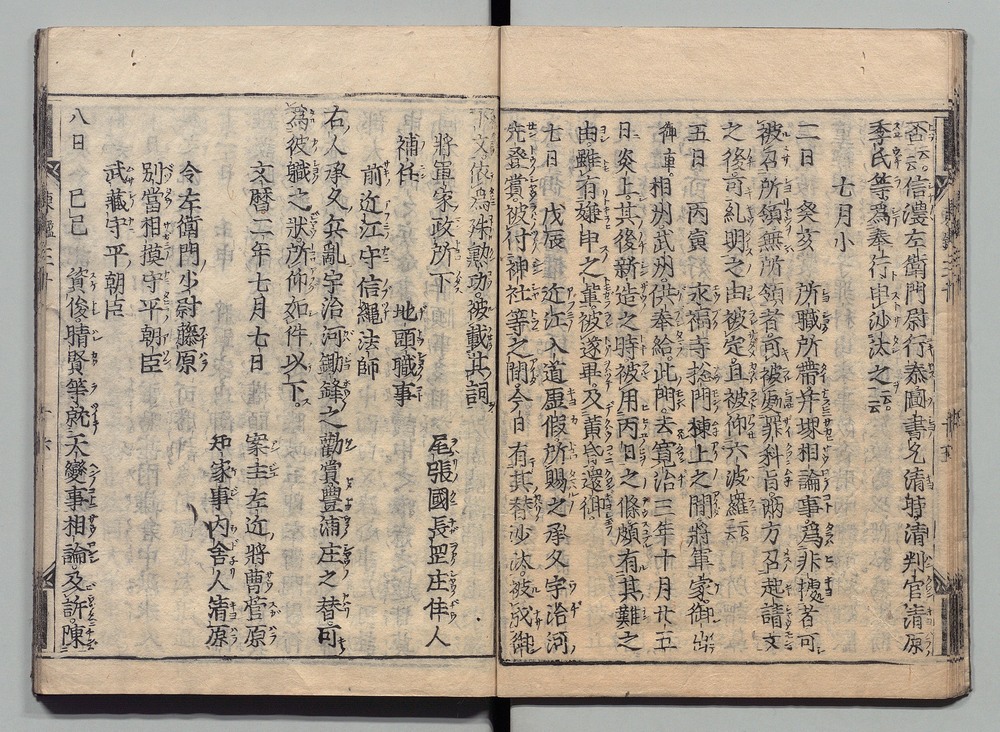 否云云。信濃左衛門尉行泰圖書允清時清判官清原
季氏等爲奉行申沙汰之云云
七月小
二日 癸亥 所職所帶并堺相論事爲非據者可
被召所領無所領者可被處罪科旨兩方召起請文
之後可糺明之由被定且被仰六波羅云云
五日 丙寅 永福寺捻門棟上之間將軍家御出
御車相州武州供奉給此門去寬治三年十月廿五
日炎上其後新造之時被用丙日之條頗有其難之
由雖有嫌申之輩被遂畢及黄昏還御
七日 戊辰 近江入道虛假所賜之承久宇治河
先登賞被付神社等之間今日有其替沙汰被成御
下文依爲殊勲功被載其詞
將軍家政所下 尾張國長岡庄住人
補任 地頭職事
前近江守信繩法師
右人承久兵亂宇治河鋤鋒之勸賞豐浦庄之替可
爲彼職之狀所仰如件以下
文曆二年七月七日 案主左近將曹菅原
令左衛門少尉藤原 知家事内舍人清原
別當相摸守平朝臣
武藏守平朝臣
八日 己巳 資俊晴賢等就天變事相論及訴陳